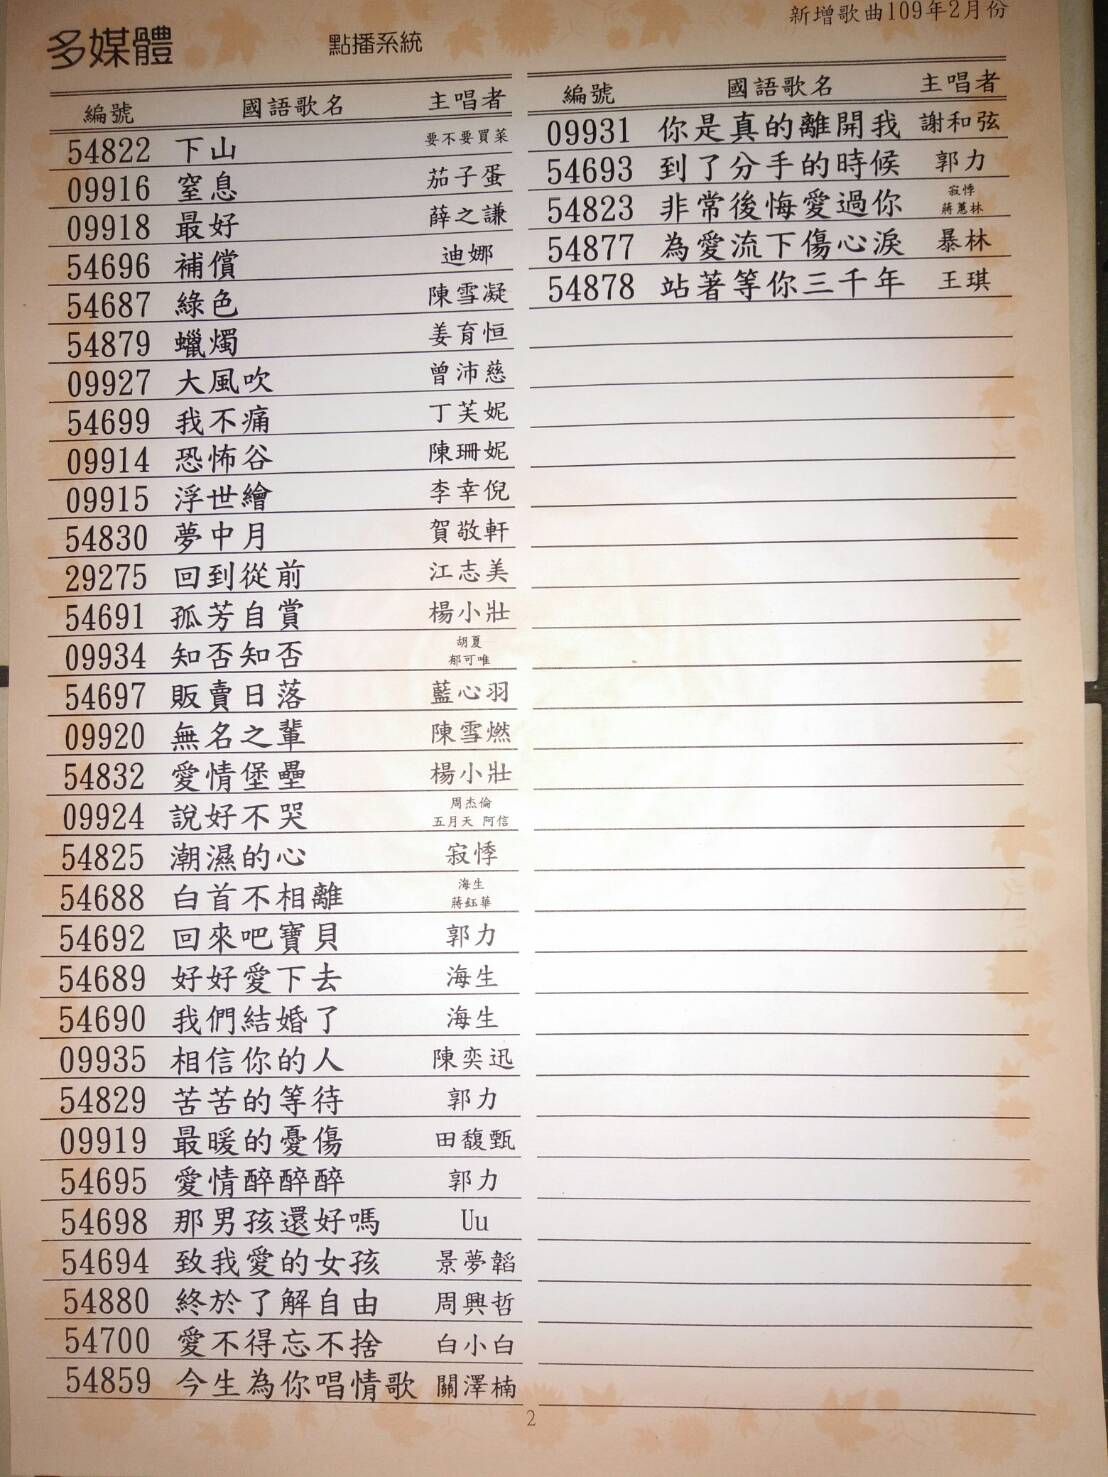 新增歌曲109年2月份
多媒體 點播系統
編號 國語歌名 主唱者
54822 下山 要不要買菜
09916 窒息 茄子蛋
09918 最好 薛之謙
54696 補償 迪娜
54687 綠色 陳雪凝
54879 蠟燭 姜育恒
09927 大風吹 曾沛慈
54699 我不痛 丁芙妮
09914 恐怖谷 陳珊妮
09915 浮世繪 李幸倪
54830 夢中月 賀敬軒
29275 回到從前 江志美
54691 孤芳自賞 楊小壯
09934 知否知否 胡夏
郁可唯
54697 販賣日落 藍心羽
09920 無名之輩 陳雪燃
54832 愛情堡壘 楊小壯
09924 說好不哭 周杰倫
五月天 阿信
54825 潮濕的心 寂悸
54688 白首不相離 海生
蔣鈺華
54692 回來吧寶貝 郭力
54689 好好愛下去 海生
54690 我們結婚了 海生
09935 相信你的人 陳奕迅
54829 苦苦的等待 郭力
09919 最暖的憂傷 田馥甄
54695 愛情醉醉醉 郭力
54698 那男孩還好嗎 Uu
54694 致我愛的女孩 景夢韜
54880 終於了解自由 周興哲
54700 愛不得忘不捨 白小白
54859 今生為你唱情歌 關澤楠
編號 國語歌名 主唱者
09931 你是真的離開我 謝和弦
54693 到了分手的時候 郭力
54823 非常後悔愛過你 寂悸
蔣蕙林
54877 為愛流下傷心淚 暴林
54878 站著等你三千年 王琪
2